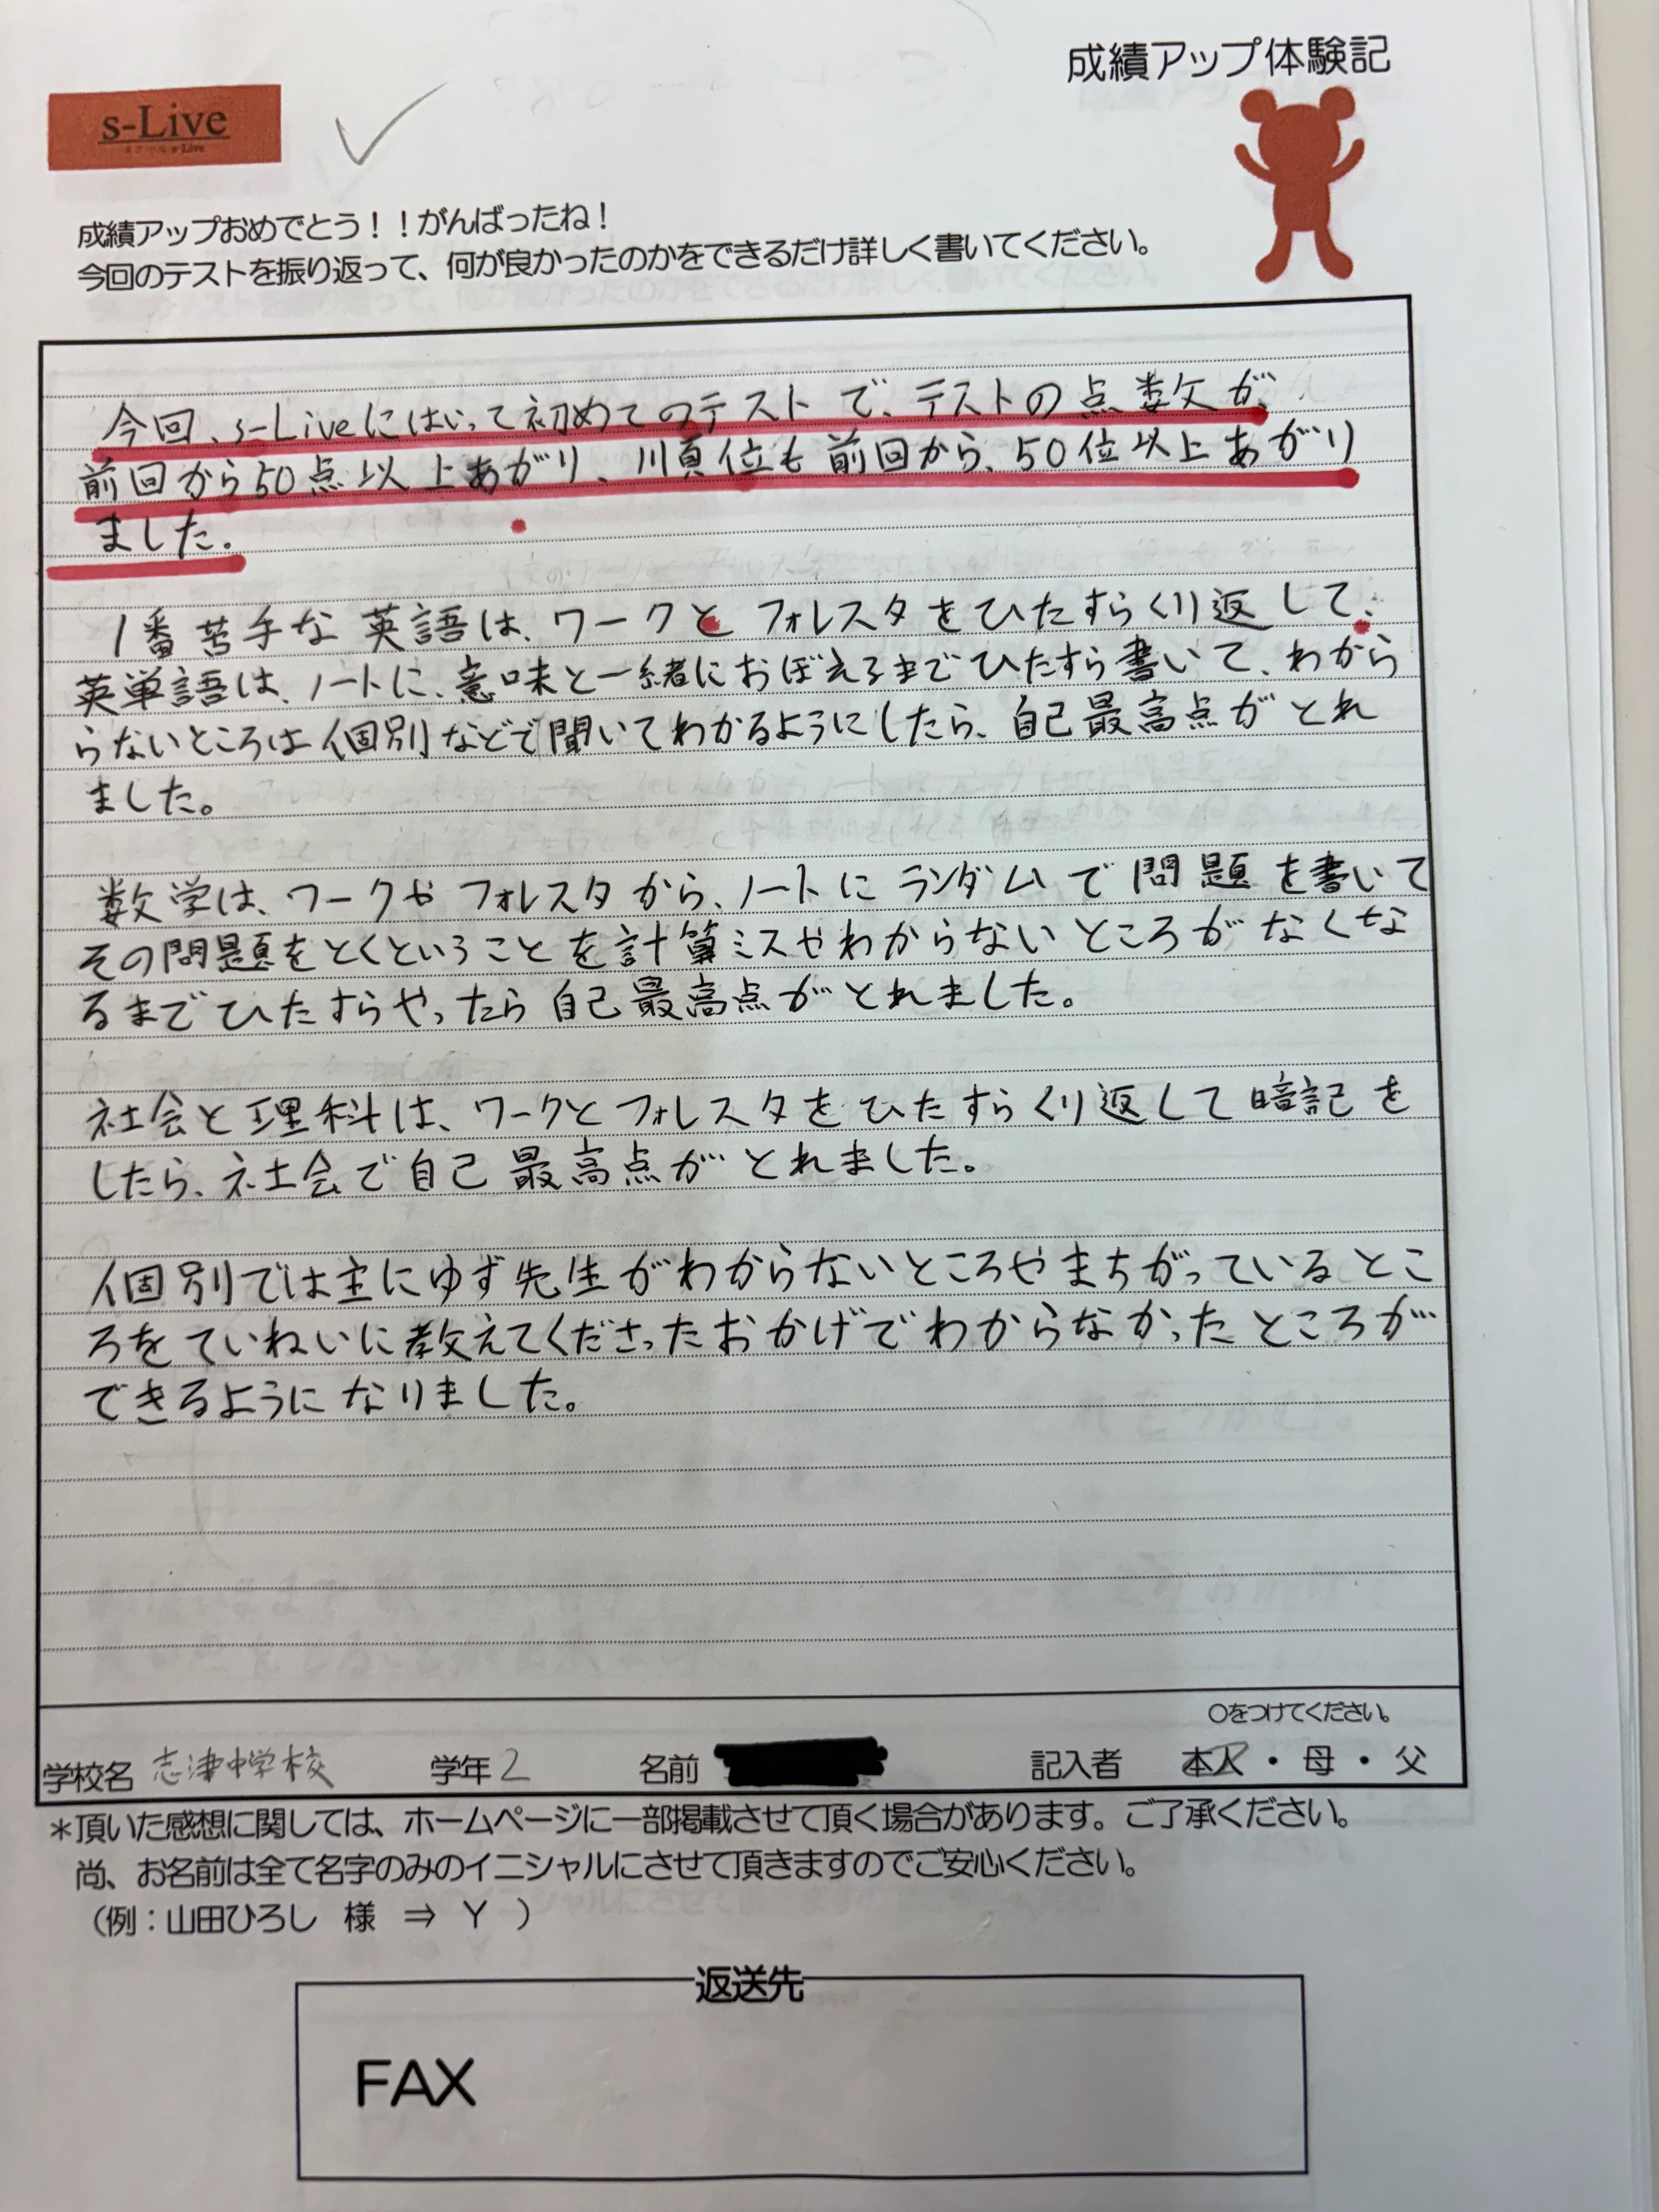 成績アップ体験記
s-Live
成績アップおめでとう！！がんばったね！
今回のテストを振り返って、何が良かったのかをできるだけ詳しく書いてください。
今回、s-Liveにはいって初めてのテストで、テストの点数が、
前回から50点以上あがり、順位も前回から、50位以上あがり
ました。
1番苦手な英語は、ワークとフォレスタをひたすらくり返して、
英単語は、ノートに、意味と一緒におぼえるまでひたすら書いて、わから
らないところは個別などで聞いてわかるようにしたら、自己最高点がとれ
ました。
数学は、ワークやフォレスタから、ノートにランダムで問題を書いて
その問題をとくということを計算ミスやわからないところがなくな
るまでひたすらやったら自己最高点がとれました。
社会と理科は、ワークとフォレスタをひたすらくり返して暗記を
したら、社会で自己最高点がとれました。
個別では主にゆず先生がわからないところやまちがっているとこ
ろをていねいに教えてくださったおかげでわからなかったところが
できるようになりました。
○をつけてください。
学校名 志津中学校 学年 2 名前 記入者 本人・母・父
＊頂いた感想に関しては、ホームページに一部掲載させて頂く場合があります。ご了承ください。
尚、お名前は全て名字のみのイニシャルにさせて頂きますのでご安心ください。
（例：山田ひろし 様 ⇒ Y ）
返送先
FAX